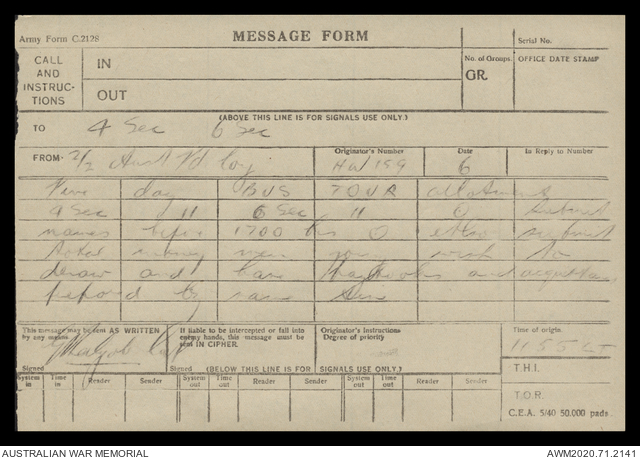 Army Form C.2128 MESSAGE FORM Serial No.
CALL AND INSTRUC-TIONS IN No. of Groups. OFFICE DATE STAMP
OUT GR.
(ABOVE THIS LINE IS FOR SIGNALS USE ONLY.)
TO 4 Sec 6 Sec
FROM 2/2 Aust Fd Coy Originator's Number HW 159 Date 6 In Reply to Number
day BUS TOUR allotment
4 Sec 11 6 Sec 11 O Submit
names before 1700 hrs O also submit
total money men you wish to
draw and have paybooks and
before same
This message may be sent AS WRITTEN by any means
If liable to be intercepted or fall into enemy hands, this message must be sent IN CIPHER.
Originator's Instructions Degree of priority
Time of origin. 1155 LT
Signed Capt Signed (BELOW THIS LINE IS FOR SIGNALS USE ONLY.) T.H.I.
System in Time in Reader Sender System out Time out Reader Sender System out Time out Reader Sender
T.O.R.
C.E.A. 5/40 50,000 pads.
AUSTRALIAN WAR MEMORIAL AWM2020.71.2141